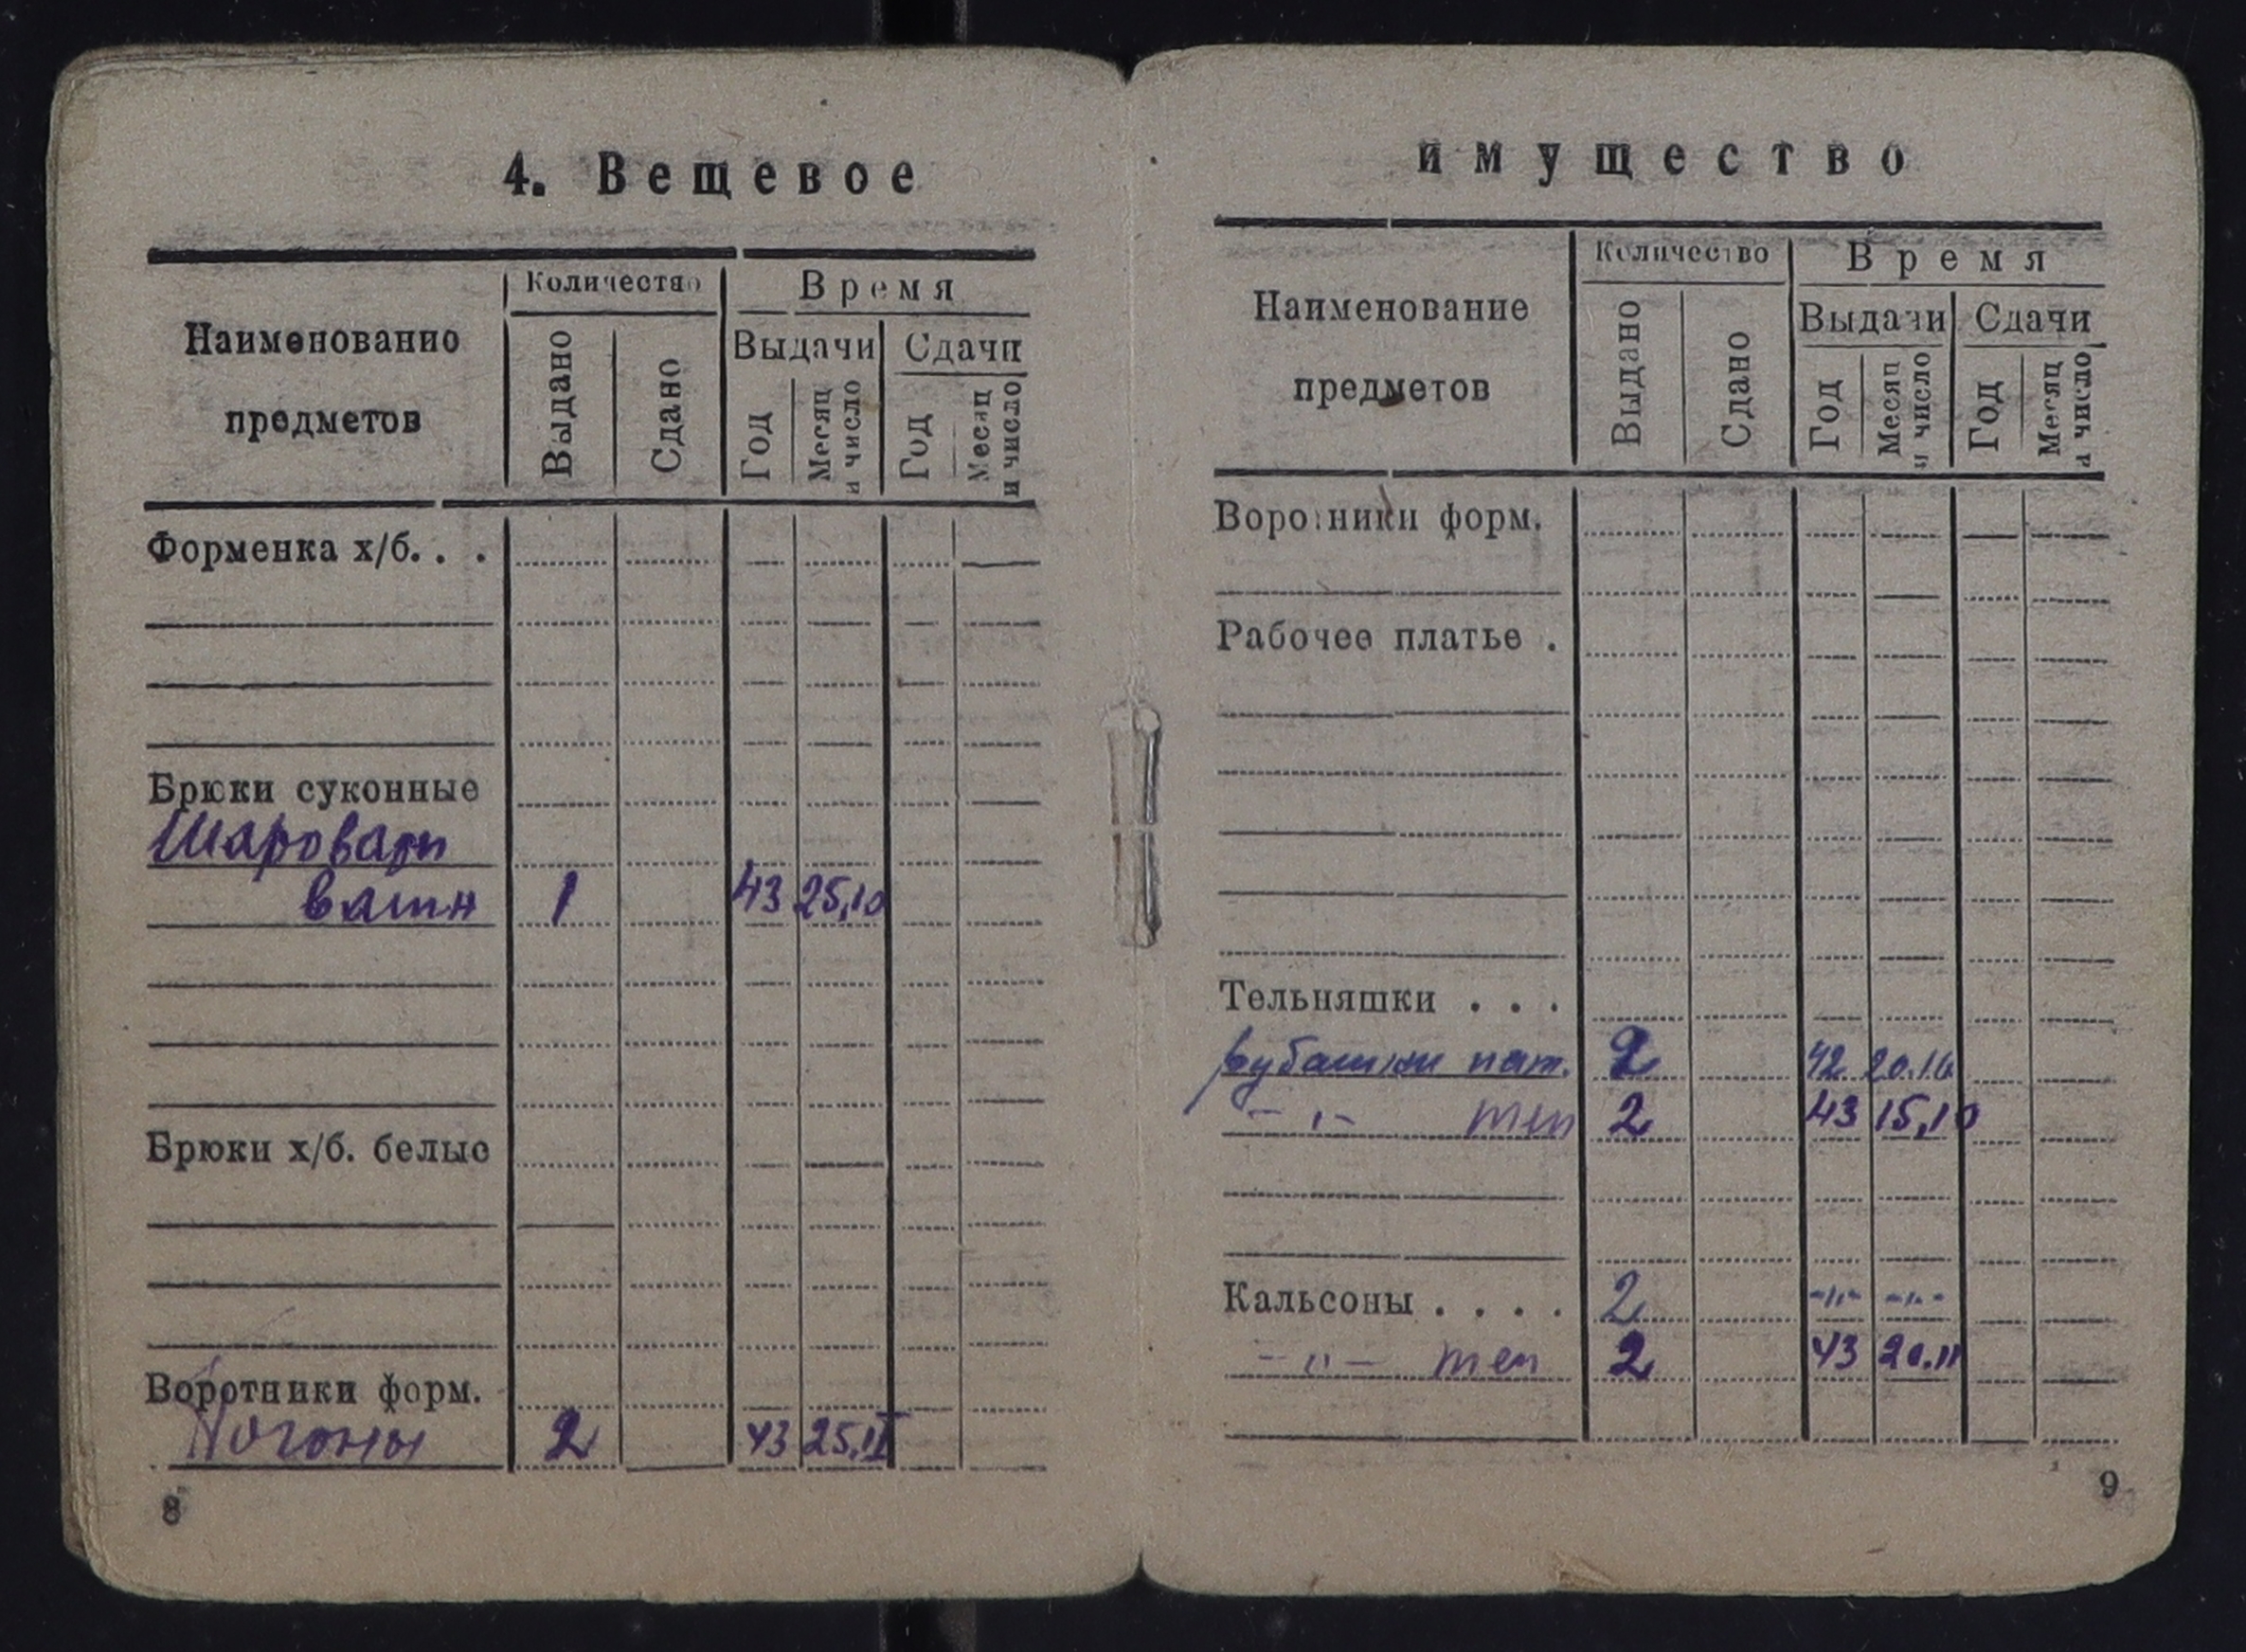 4. Вещевое
Наименование предметов
Количество
Время
Выдано
Сдано
Выдачи
Сдачи
Год
Месяц и число
Год
Месяц и число
Форменка х/б. . .
Брюки суконные
Шаровары
ватн 1 43 25,10
Брюки х/б. белые
Воротники форм.
Погоны 2 43 25.II
8
имущество
Наименование предметов
Количество
Время
Выдано
Сдано
Выдачи
Сдачи
Год
Месяц и число
Год
Месяц и число
Воротники форм.
Рабочее платье .
Тельняшки . . .
рубашки нат. 2 42 20.10
-"- теп 2 43 15,10
Кальсоны . . . . 2 -"- -"-
-"- теп 2 43 20.11
9